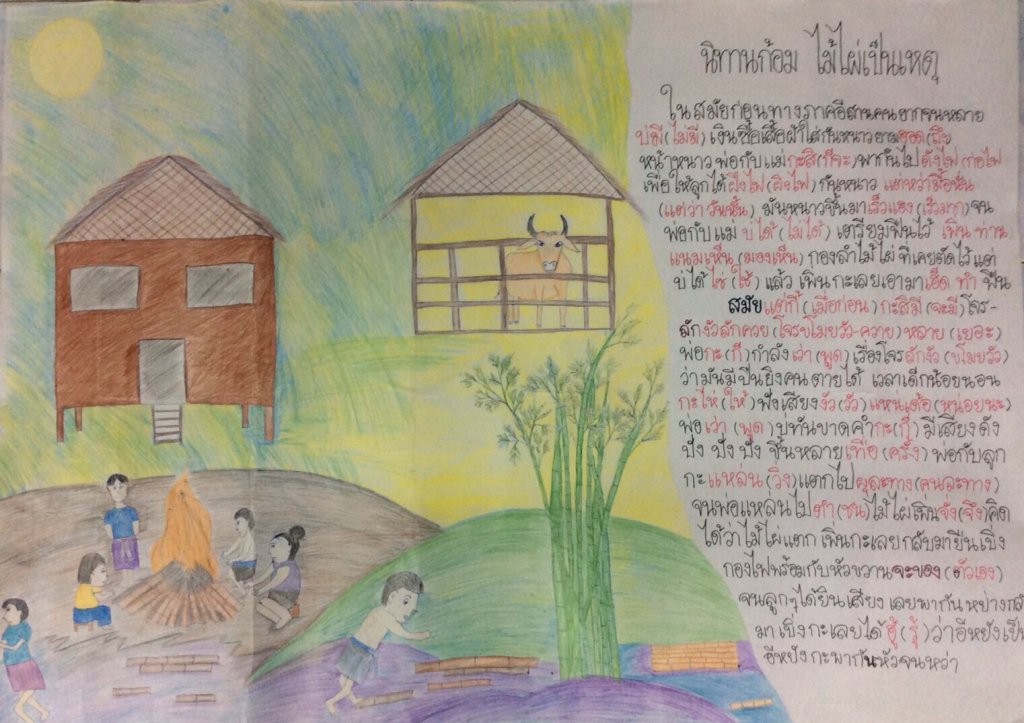 นิทานก้อม ไม้ไผ่เป็นเหตุ
ในสมัยก่อนทางภาคอีสานคนยากจนหลาย
บ่มี (ไม่มี) เงินซื้อเสื้อผ้าใส่กันหนาวยามฮอด (ถึง)
หน้าหนาว พ่อกับแม่กะสิ (ก็จะ) พากันไปดังไฟ ก่อไฟ
เพื่อให้ลูกได้ฝิงไฟ (ผิงไฟ) กันหนาว แต่หว่ามื้อนั่น
(แต่ว่าวันนั้น) มันหนาวขึ้นมาเร็วแฮง (เร็วมาก) จน
พ่อกับแม่ บ่ได้ (ไม่ได้) เตรียมฟืนไว้ เพิ่น ท่าน
แนมเห็น (มองเห็น) กองลำไม้ไผ่ ที่เคยตัดไว้แต่
บ่ได้ใซ่ (ใช้) แล้ว เพิ่นกะเลยเอามาเฮ็ด ทำ ฟืน
สมัยแต่กี้ (เมื่อก่อน) กะสิมี (จะมี) โจร-
ลักงัวลักควย (โจรขโมยวัว-ควาย) หลาย (เยอะ)
พ่อกะ (ก็) กำลังเว่า (พูด) เรื่องโจรลักงัว (ขโมยวัว)
ว่ามันมีปืนยิงคนตายได้ เวลาเด็กน้อยนอน
กะไห่ (ให้) ฟังเสียงงัว (วัว) แหน่เด้อ (หน่อยนะ)
พอเว่า (พูด) บ่ทันขาดคำกะ (ก็) มีเสียงดัง
ปัง ปัง ปัง ขึ้นหลายเทือ (ครั้ง) พ่อกับลูก
กะแหล่น (วิ่ง) แตกไปผุละทาง (คนละทาง)
จนพ่อแหล่นไปตำ (ชน) ไม้ไผ่เพิ่นจั่ง (จึง) คิด
ได้ว่าไม้ไผ่แตก เพิ่นกะเลยกลับมายืนเบิ่ง
กองไฟพร้อมกับหัวขวานจะของ (ตัวเอง)
จนลูกๆได้ยินเสียง เลยพากันหย่างกลั
มาเบิ่งกะเลยได้ฮู้ (รู้) ว่าอีหยังเป็น
อีหยังกะพากันหัวจนหว่า